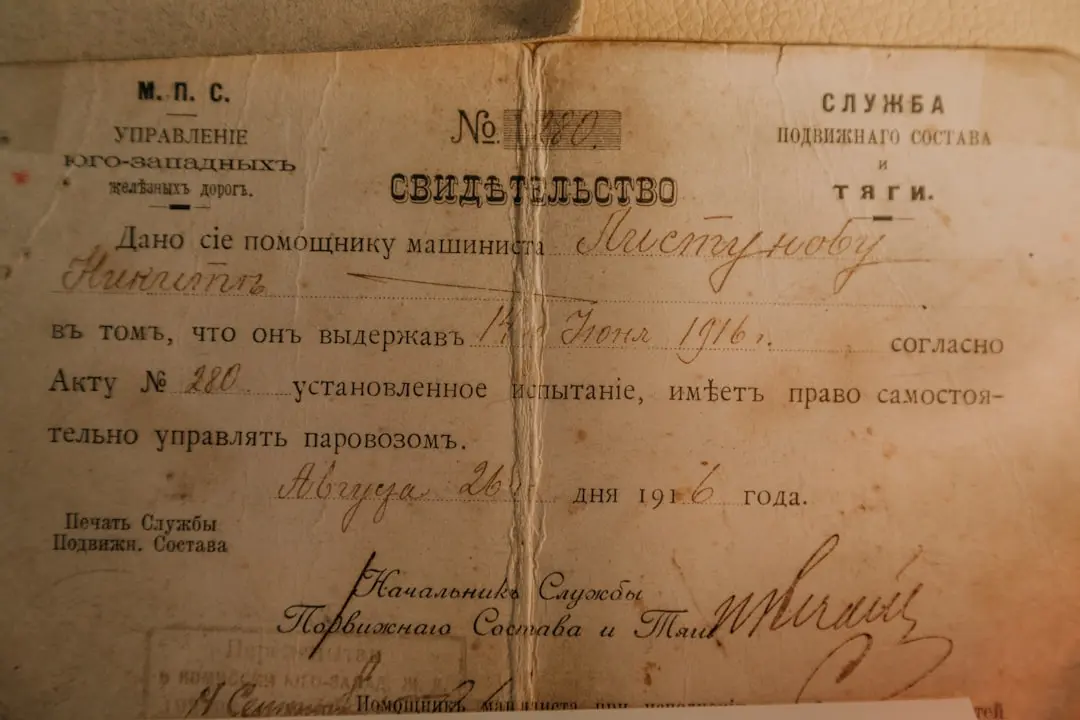 М. П. С.
УПРАВЛЕНІЕ
ЮГО-ЗАПАДНЫХЪ
желѣзныхъ дорогъ.
№ 280.
СВИДѢТЕЛЬСТВО
СЛУЖБА
ПОДВИЖНАГО СОСТАВА
и
ТЯГИ.
Дано сіе помощнику машиниста Листунову
Никитѣ
въ томъ, что онъ выдержавъ 14го Іюня 1916 г. согласно
Акту № 280. установленное испытаніе, имѣетъ право самостоя-
тельно управлять паровозомъ.
Августа 26го дня 1916 года.
Печать Службы
Подвижн. Состава
Начальникъ Службы
Подвижнаго Состава и Тяги
Помощникъ машиниста при